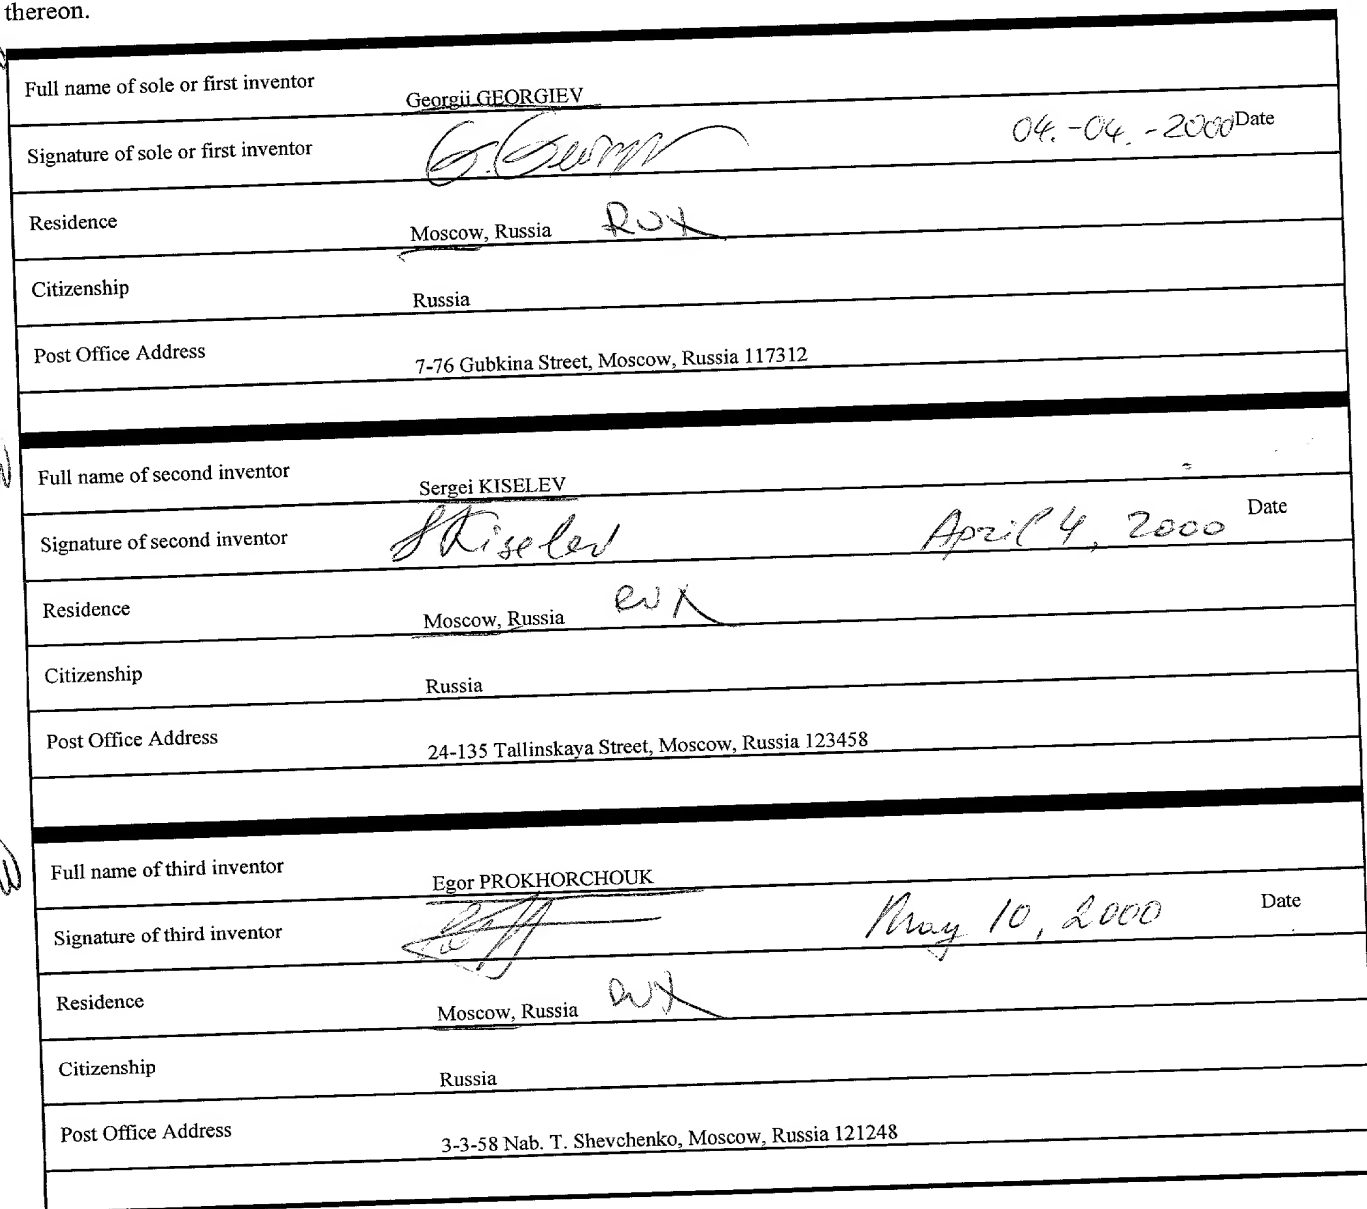 thereon.
Full name of sole or first inventor Georgii GEORGIEV
Signature of sole or first inventor G. Georgi 04.-04.-2000 Date
Residence Moscow, Russia RUX
Citizenship Russia
Post Office Address 7-76 Gubkina Street, Moscow, Russia 117312
Full name of second inventor Sergei KISELEV
Signature of second inventor SKiselev April 4, 2000 Date
Residence Moscow, Russia RUX
Citizenship Russia
Post Office Address 24-135 Tallinskaya Street, Moscow, Russia 123458
Full name of third inventor Egor PROKHORCHOUK
Signature of third inventor May 10, 2000 Date
Residence Moscow, Russia RUX
Citizenship Russia
Post Office Address 3-3-58 Nab. T. Shevchenko, Moscow, Russia 121248